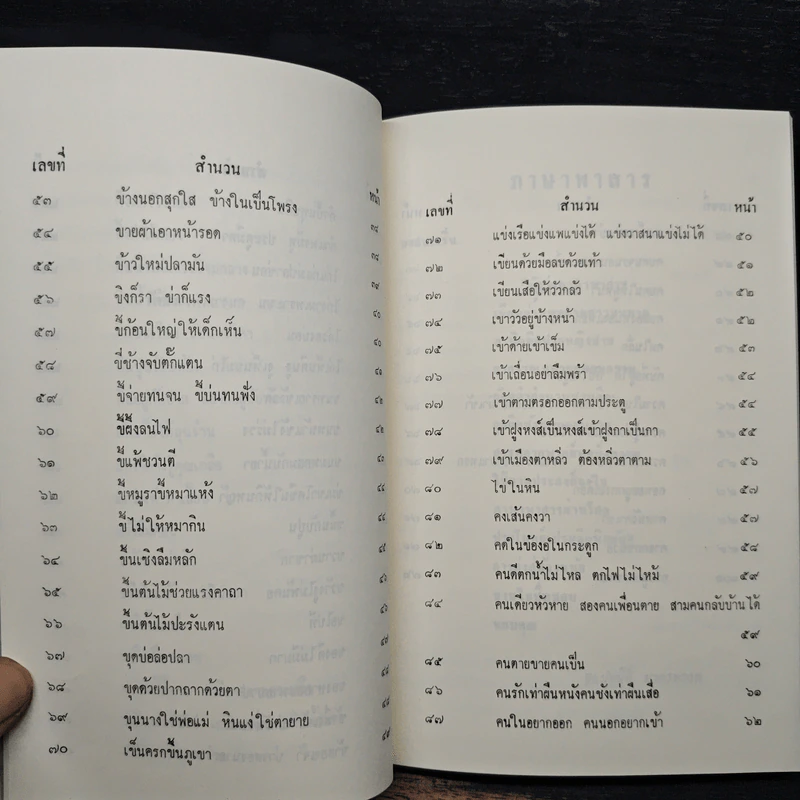 เลขที่ สำนวน หน้า
๕๓ ข้างนอกสุกใส ข้างในเป็นโพรง ๓๘
๕๔ ขายผ้าเอาหน้ารอด ๓๘
๕๕ ข้าวใหม่ปลามัน ๓๙
๕๖ ขิงก็รา ข่าก็แรง ๔๐
๕๗ ขี้ก้อนใหญ่ให้เด็กเห็น ๔๐
๕๘ ขี่ช้างจับตั๊กแตน ๔๑
๕๙ ขี้จ่ายทนจน ขี้บ่นทนฟัง ๔๒
๖๐ ขี้ผึ้งลนไฟ ๔๒
๖๑ ขี้แพ้ชวนตี
๖๒ ขี้หมูราขี้หมาแห้ง ๔๔
๖๓ ขี้ไม่ให้หมากิน ๔๔
๖๔ ขึ้นเชิงลืมหลัก ๔๕
๖๕ ขึ้นต้นไม้ช่วยแรงคาถา ๔๖
๖๖ ขึ้นต้นไม้ปะรังแตน
๖๗ ขุดบ่อล่อปลา
๖๘ ขุดด้วยปากถากด้วยตา
๖๙ ขุนนางใช่พ่อแม่ หินแง่ใช่ตายาย
๗๐ เข็นครกขึ้นภูเขา ๔๙
เลขที่ สำนวน หน้า
๗๑ แข่งเรือแข่งแพแข่งได้ แข่งวาสนาแข่งไม่ได้ ๕๐
๗๒ เขียนด้วยมือลบด้วยเท้า ๕๑
๗๓ เขียนเสือให้วัวกลัว ๕๒
๗๔ เขาวัวอยู่ข้างหน้า ๕๒
๗๕ เข้าด้ายเข้าเข็ม ๕๓
๗๖ เข้าเถื่อนอย่าลืมพร้า ๕๔
๗๗ เข้าตามตรอกออกตามประตู ๕๔
๗๘ เข้าฝูงหงส์เป็นหงส์เข้าฝูงกาเป็นกา ๕๕
๗๙ เข้าเมืองตาหลิ่ว ต้องหลิ่วตาตาม ๕๖
๘๐ ไข่ในหิน ๕๗
๘๑ คงเส้นคงวา ๕๗
๘๒ คดในข้องอในกระดูก ๕๘
๘๓ คนดีตกน้ำไม่ไหล ตกไฟไม่ไหม้ ๕๙
๘๔ คนเดียวหัวหาย สองคนเพื่อนตาย สามคนกลับบ้านได้
๕๙
๘๕ คนตายขายคนเป็น ๖๐
๘๖ คนรักเท่าผืนหนังคนชังเท่าผืนเสื่อ ๖๑
๘๗ คนในอยากออก คนนอกอยากเข้า ๖๒